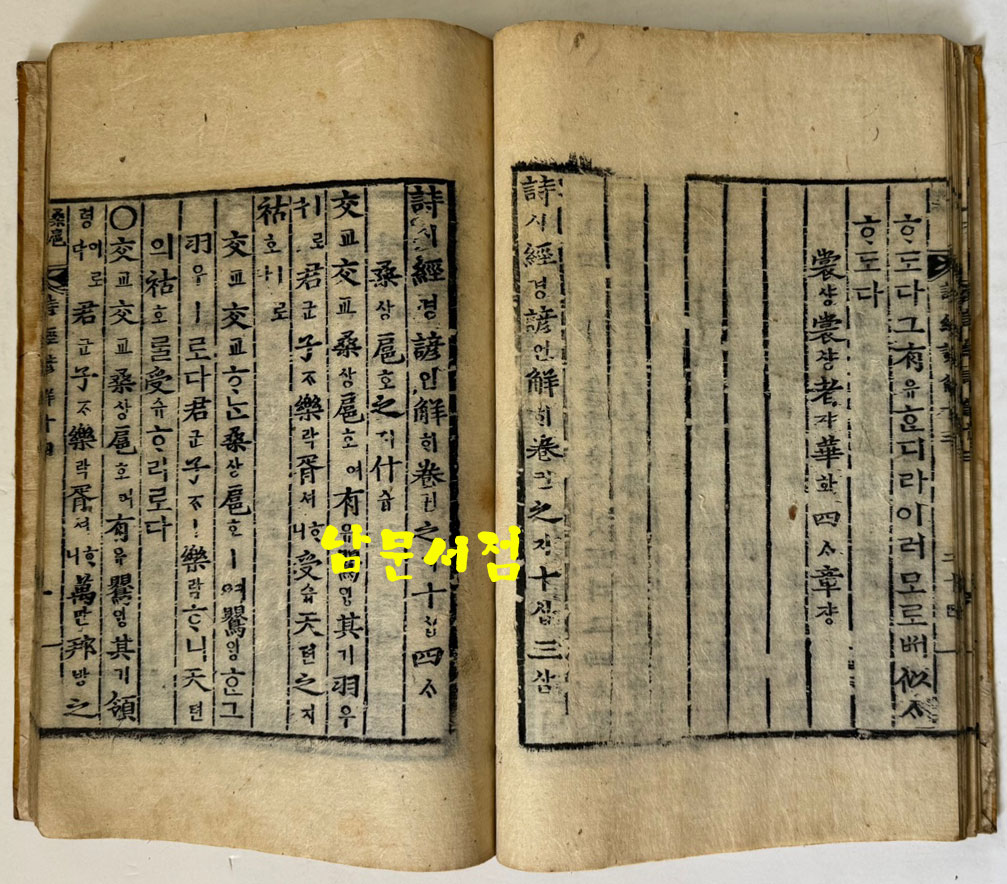 ᄒᆞ도다그有유ᄒᆞᆫ디라이러모로ᄡᅥ似ᄉᆞ
ᄒᆞ도다
裳샹裳쟝老쟈華화四ᄉᆞ章쟝
詩시經경諺언解ᄒᆡ卷권之지十십三삼
詩시經경諺언解ᄒᆡ卷권之 十십四ᄉᆞ
桑상扈호之지什습
交교交교桑상扈호여有유鶯영其기羽우
ㅣ로君군子ᄌᆞ樂락胥셔ᄒᆞ니受슈天텬之지
祜호ㅣ로다
交교交교ᄒᆞᄂᆞᆫ桑상扈호ㅣ여鶯영ᄒᆞᆫ그
羽우ㅣ로다君군子ᄌᆞㅣ樂락ᄒᆞ니天텬
의祜호를受슈ᄒᆞ리로다
○交교交교桑상扈호여有유鶯영其기領
령이로다君군子ᄌᆞ樂락胥셔ᄒᆞ니萬만邦방之
桑扈 詩經諺解十四 一
남문서점